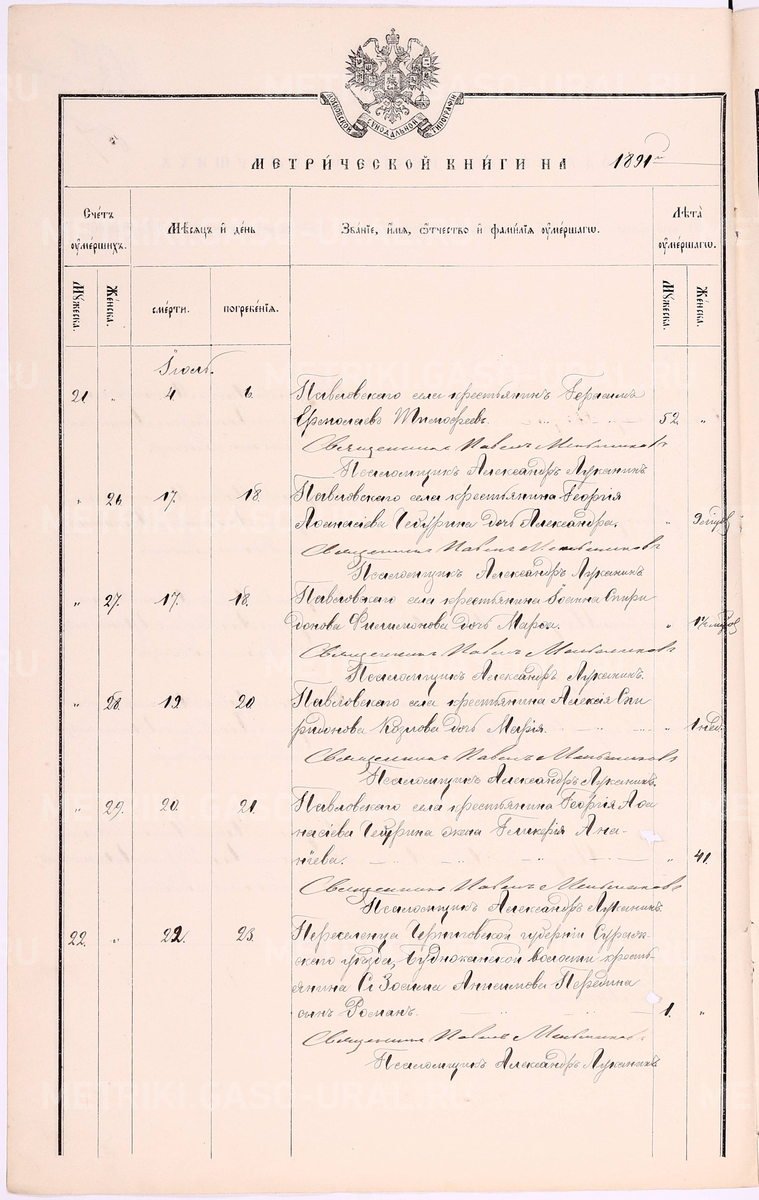 МОСКОВСКОЙ СѴНОДАЛЬНОЙ ТИПОГРАФІИ
МЕТРИ́ЧЕСКОЙ КНИ́ГИ НА 1891й
Сче́тъ оу҆ме́ршихъ.
Мѣ́сяцъ и҆ де́нь
Зва́нїе, и҆́мя, ѻ҆́тчество и҆ фамил́їя оу҆ме́ршагѡ.
Лѣ́та оу҆ме́ршагѡ.
Мꙋ́жеска. Же́нска. сме́рти. погребе́нїя. Мꙋ́жеска. Же́нска.
Іюль.
21 „ 4 6 Павловскаго села крестьянинъ Герасимъ
Ермолаевъ Тимофеевъ. 52. „
Священникъ Павелъ Меньшиковъ
Псаломщикъ Александръ Луканинъ.
„ 26. 17. 18. Павловскаго села крестьянина Георгія
Аѳанасіева дочь Александра. „ 9
Священникъ Павелъ Меньшиковъ
Псаломщикъ Александръ Луканинъ
„ 27. 17. 18. Павловскаго села крестьянина Іоанна Спири
донова Филимонова дочь Марѳа. „
Священникъ Павелъ Меньшиковъ
Псаломщикъ Александръ Луканинъ.
„ 28. 19. 20 Павловскаго села крестьянина Алексія Спи
ридонова Козлова дочь Марія. „ 1 нед.
Священникъ Павелъ Меньшиковъ
Псаломщикъ Александръ Луканинъ.
„ 29. 20. 21. Павловскаго села крестьянина Георгія Аѳа
насіева жена Гликерія Ана-
ніева. „ 41.
Священникъ Павелъ Меньшиковъ
Псаломщикъ Александръ Луканинъ.
22. „ 22. 23. Переселенца Черниговской губерніи Сураж-
скаго уѣзда, волости кресть-
янина Зосима Анисимова
сынъ Романъ. 1. „
Священникъ Павелъ Меньшиковъ
Псаломщикъ Александръ Луканинъ
METRIKI.GASO-URAL.RU